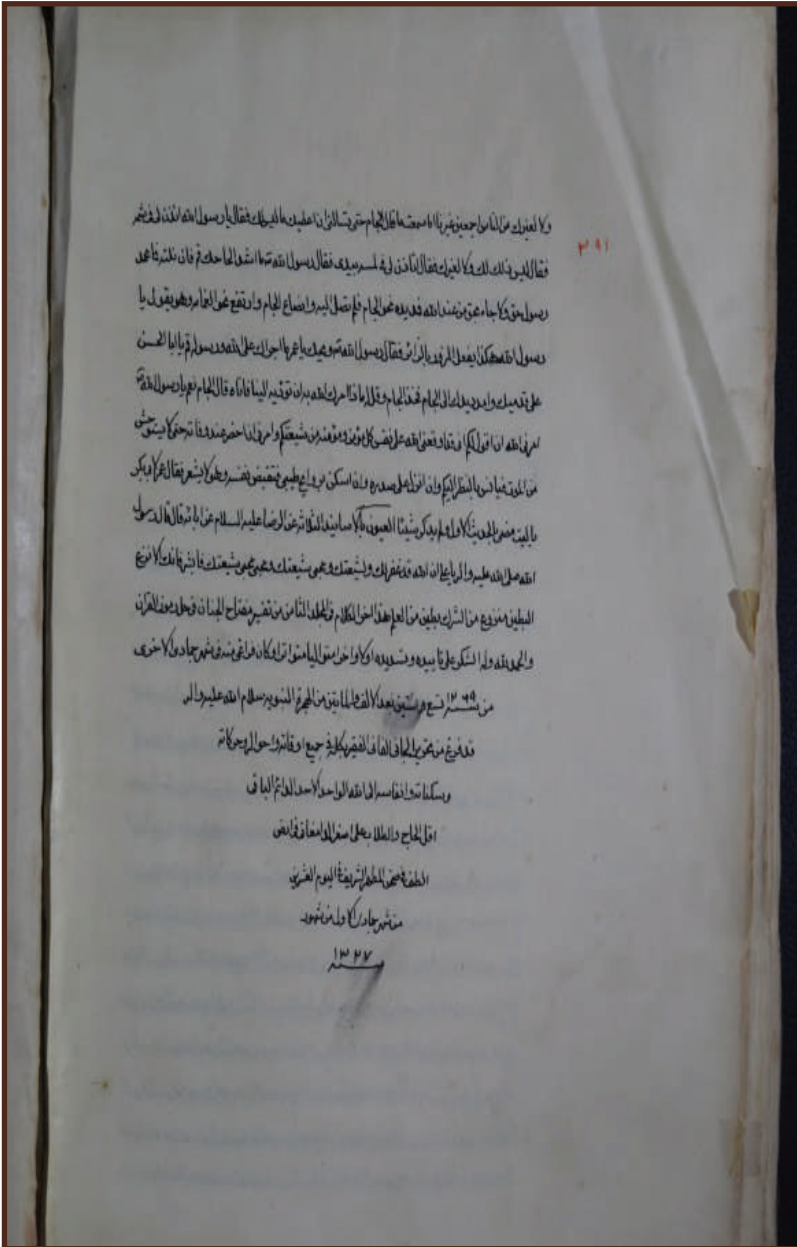 ولا لغيرك من الناس اجمعين غيرنا اما سمعت ما قال الجام حتى تسالنى ان اعطيك ما ليس لك فقال يا رسول الله ائذن لى فى شمه
٣٩١
فقال ليس ذلك لك ولا لغيرك فقال اتاذن لى فى لمسه بيدى فقال رسول الله ص ما اشد الحاحك قم فان نلته فما محمد
رسول حق ولا جاء بحق من عند الله فمد يده نحو الجام فلم تصل اليه وانصاع الجام وارتفع نحو الغمامه وهو يقول يا
رسول الله هكذا يفعل المزور بالزائر فقال رسول الله ص ويحك يا عمر ما اجراك على الله ورسوله قم يا ابا الحسن
على قدميك وامدد يدك الى الجام فخذ الجام وقل له ماذا امرك الله به ان تؤديه الينا فاتاه قال الجام نعم يا رسول الله ص
امرنى الله ان اقول لكم انى قد اوقفنى الله على نفس كل مؤمن ومؤمنه من شيعتكم وامرنى ان احضر عند وفاته حتى لا يستوحش
من الموت فياانس بالنظر اليكم وان انزل على صدره وان اسكن بروائح طيبى فتقبض نفسه وهو لا يشعر فقال عمر لابى بكر
يا ليت مضى الحديث الاول ولم يذكر شيئا العيون بالاسانيد الثلاثه عن الرضا عليه السلام عن ابائه قال قال رسول
الله صلى الله عليه واله يا على ان الله قد غفر لك ولشيعتك ومحبى شيعتك ومحبى محبى شيعتك فابشر فانك الانزع
البطين منزوع من الشرك بطين من العلم هذا اخر الكلام فى المجلد الثامن من تفسير مفتاح الجنان فى حل رموز القران
والحمد لله وله الشكر على تاييده وتسديده اولا واخرا متواليا متواترا وكان فراغى منه فى شهر جمادى الاخرى
من سنه ١٢٦٩ تسع وستين بعد الالف والماتين من الهجرة النبويه سلام الله عليه واله
قد فرغ من تحرير الجانى الفانى الفقير بكله فى جميع اوقاته واحواله وحركاته
وسكناته وانفاسه الى الله الواحد الاحد الدائم الباقى
اقل الحاج والطلاب على اصغر الدامغانى فى ارض
الطف فى صحن المطهر الشريف فى اليوم العشرين
من شهر جمادى الاول من شهور
سنه ١٣٢٧